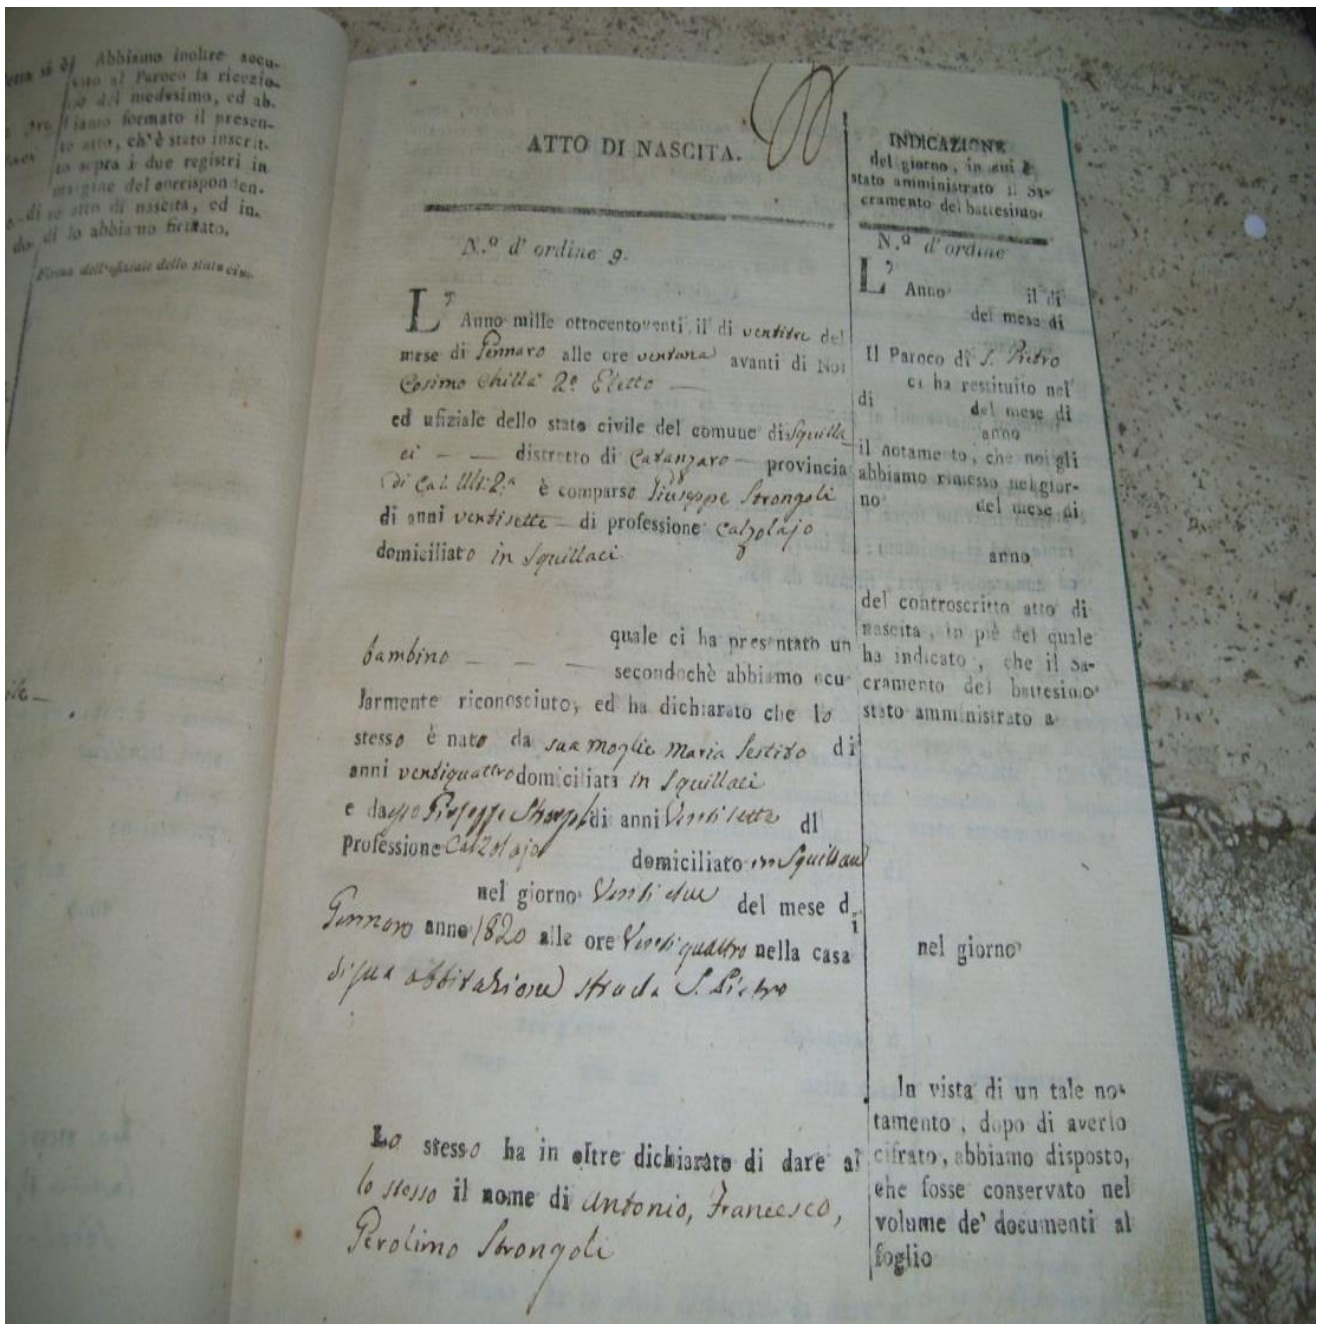 Abbiamo inoltre accu-
sato al Paroco la ricezio-
ne del medesimo, ed ab-
biamo formato il presen-
te atto, ch'è stato inscrit-
to sopra i due registri in
margine del corrisponden-
te atto di nascita, ed in-
di lo abbiamo firmato.
Firma dell'ufiziale dello stato civ.
ATTO DI NASCITA.
N.º d'ordine 9.
L'Anno mille ottocentoventi il di ventitre del
mese di Gennaro alle ore ventuna avanti di Noi
Cosimo Chillà 2º Eletto
ed ufiziale dello stato civile del comune di Squilla
ci — — distretto di Catanzaro — provincia
di Cal. Ult. 2.ª è comparso Giuseppe Strongoli
di anni ventisette — di professione calzolajo
domiciliato in Squillaci
quale ci ha presentato un
bambino — — — secondochè abbiamo ocu-
larmente riconosciuto, ed ha dichiarato che lo
stesso è nato da sua moglie Maria Sestito di
anni ventiquattro domiciliata in Squillaci
e da esso Giuseppe Strongoli di anni Ventisette di
professione Calzolajo domiciliato in Squillaci
nel giorno Venti due del mese di
Gennaro anno 1820 alle ore Ventiquattro nella casa
di sua abbitazione strada S. Pietro
Lo stesso ha in oltre dichiarato di dare al
lo stesso il nome di Antonio, Francesco,
Gerolimo Strongoli
INDICAZIONE
del giorno, in cui è
stato amministrato il Sa-
cramento del battesimo.
N.º d'ordine
L'Anno il di
del mese di
Il Paroco di S. Pietro
ci ha restituito nel
di del mese di
anno
il notamento, che noi gli
abbiamo rimesso nel gior-
no del mese di
anno
del controscritto atto di
nascita, in piè del quale
ha indicato, che il Sa-
cramento del battesimo
stato amministrato a
nel giorno
In vista di un tale no-
tamento, dopo di averlo
cifrato, abbiamo disposto,
che fosse conservato nel
volume de' documenti al
foglio